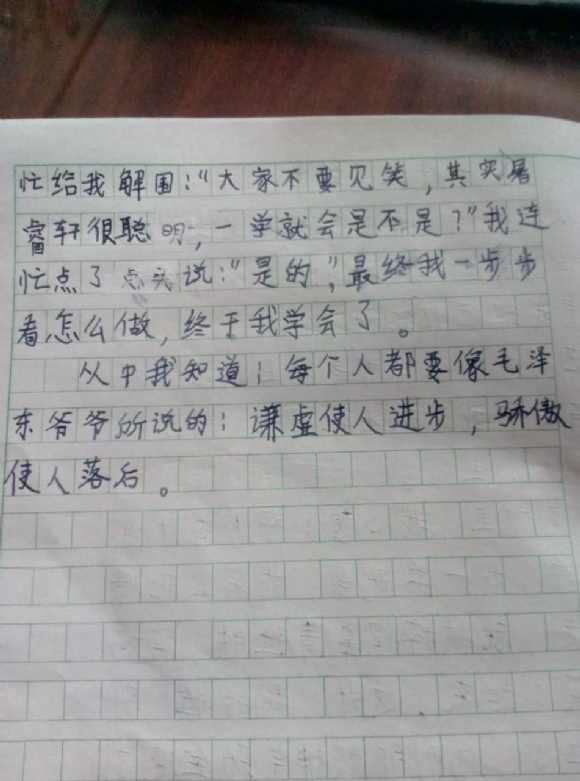 忙给我解围:“大家不要见笑,其实屠
睿轩很聪明,一学就会是不是?”我连
忙点了点头说:“是的”,最终我一步步
看怎么做,终于我学会了。
从中我知道:每个人都要像毛泽
东爷爷所说的:谦虚使人进步,骄傲
使人落后。